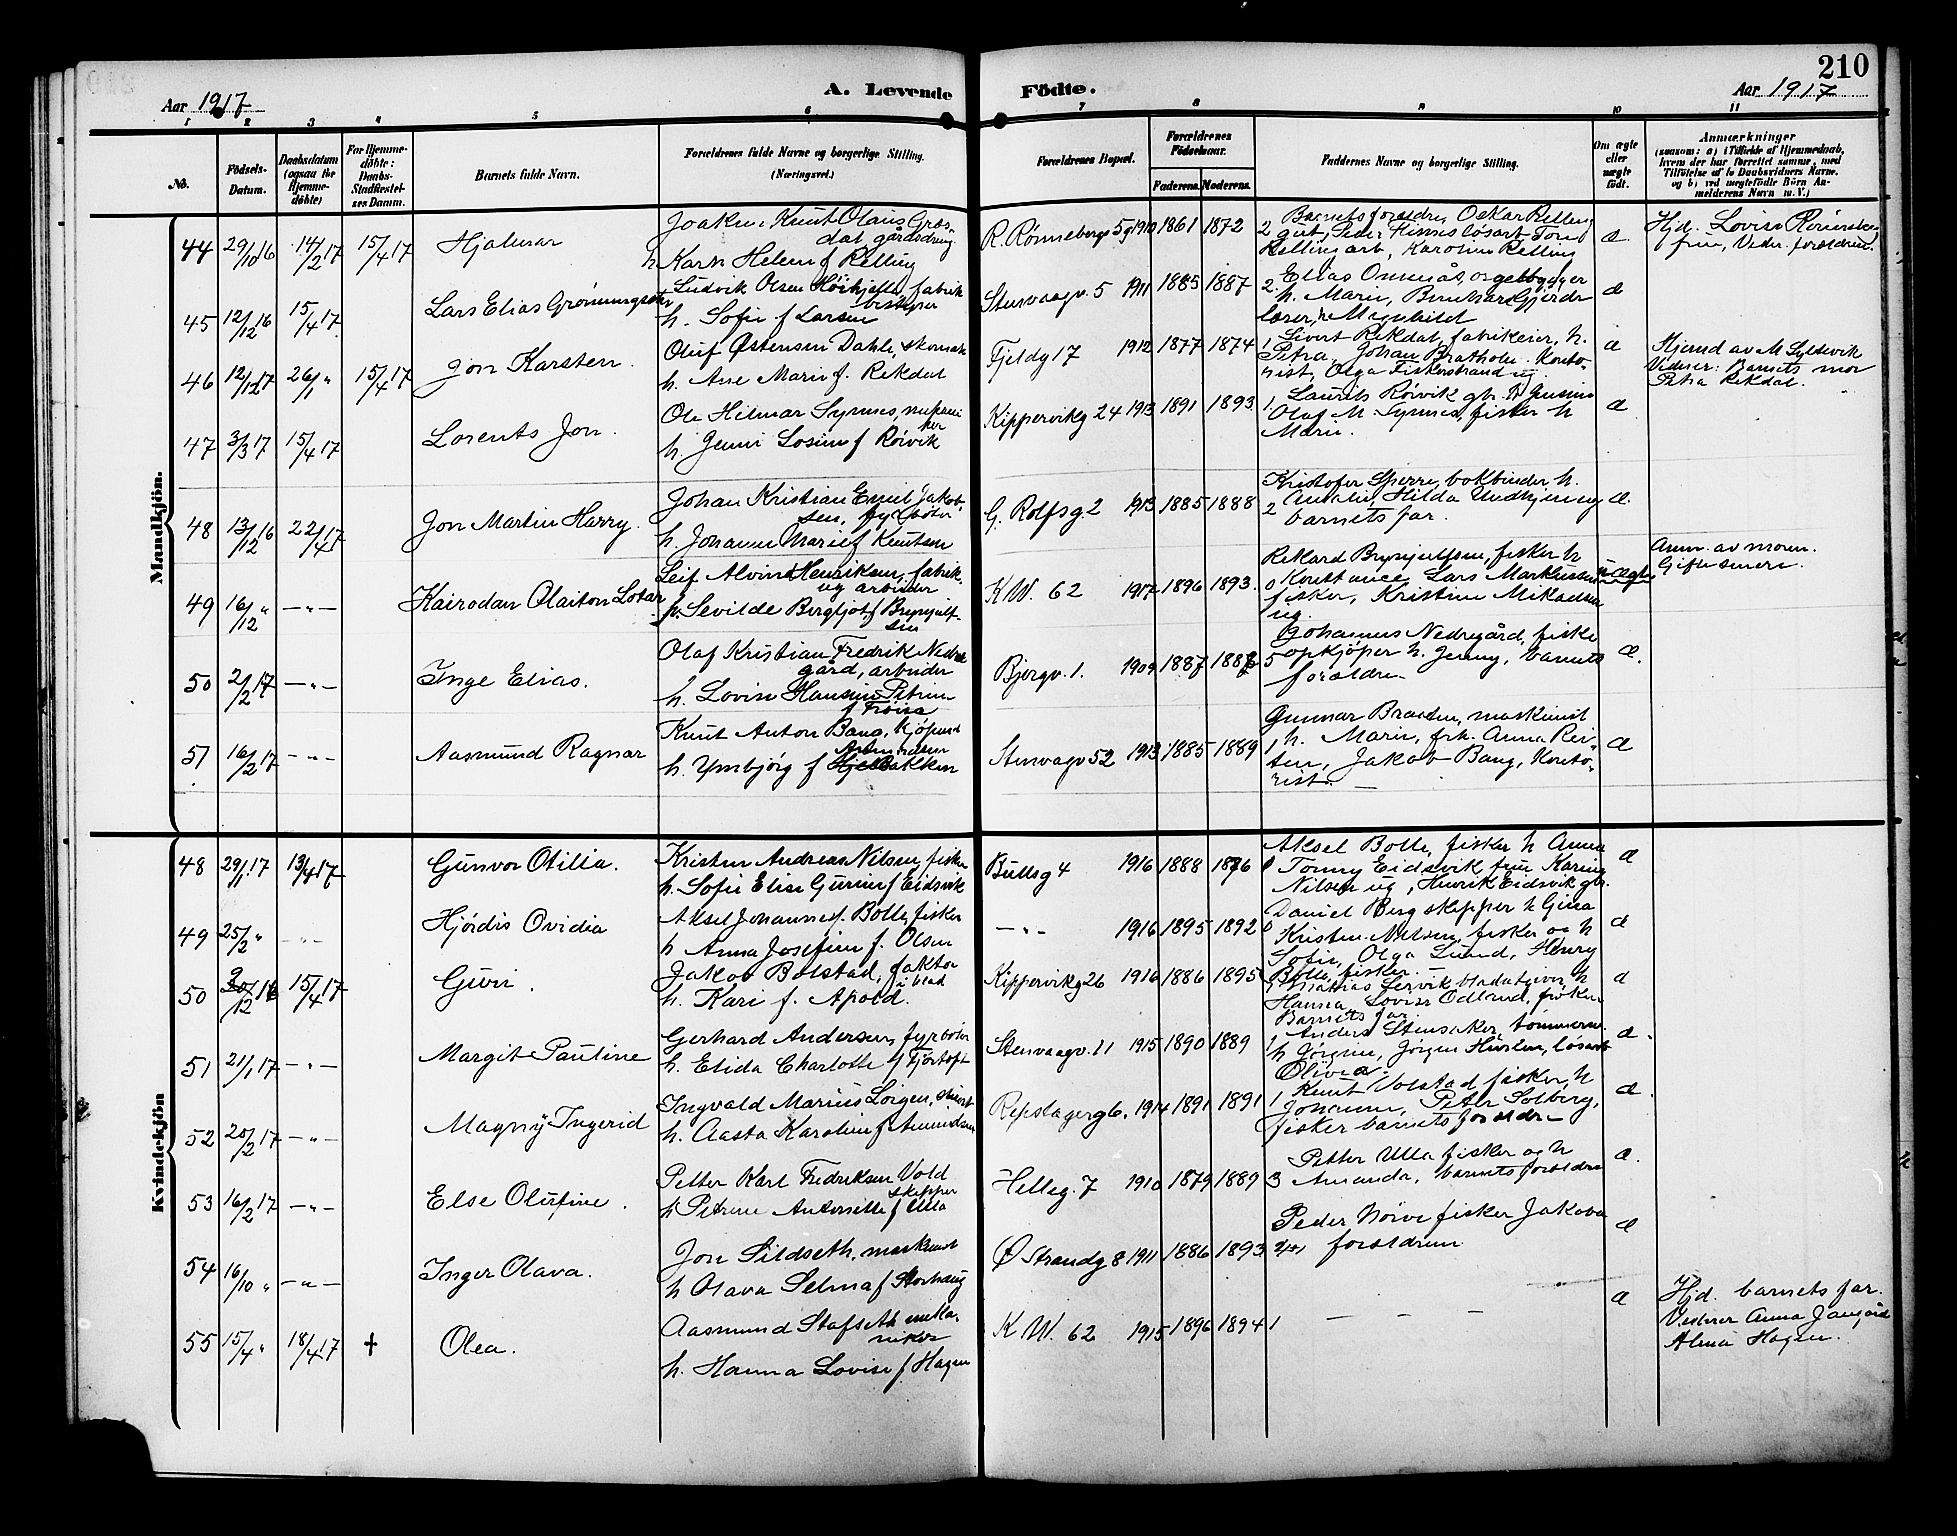 210
A. Levende Födte.
Aar 1917
Aar 1917
1 2 3 4 5 6 7 8 9 10 11
No.
Födsels-Datum.
Daabsdatum (ogsaa for Hjemme-döbte)
For Hjemme-döbte: Daabs-Stadfæstel-ses Datum.
Barnets fulde Navn.
Forældrenes fulde Navne og borgerlige Stilling. (Næringsvei.)
Forældrenes Bopæl.
Forældrenes Födselsaar.
Faderens. Moderens.
Faddernes Navne og borgerlige Stilling.
Om ægte eller uægte födt.
Anmærkninger
(saasom: a) i Tilfælde af Hjemmedaab,
hvem der har forrettet samme, med
Tilföielse af to Daabsvidners Navne,
og b) ved uægtefödte Börn An-
melderens Navn m. V.)
Mandkjön.
44 29/10 16 14/2 17 15/4 17 Hjalmar
Knut Olaus Gros-
dal gårdsdreng
Karn Helene f Relling
R. Rønnebergs 5g 1910 1861 1872
2 Barnets foreldre, Oskar Relling
gut, Peder Hinnes løsarb. Tom
Relling arb, Karoline Relling
æ
Hjd. Lovise
frue, Vidn. foreldrene.
45 12/12 16 15/4 17 Lars Elias Grønningsæter
Ludvik Olsen fabrik
bestyrer
h. Sofie f Larsen
Stenvaagv. 5 1911 1885 1887
2 Elias Omenås, orgelbygger
h. Marie, Bernhard Gjerde
lærer, h Magnhild
æ
46 12/1 17 26/1 " 15/4 17 Jon Karsten
Oluf Østensen Dahle, skomak
h. Ane Marie f. Rekdal
Fjeldg 17 1912 1877 1874
1 Sivert Rekdal, fabrikeier, h.
Petra, Johan Bratholm Konto-
rist, Olga Fiskerstrand ug.
æ
Hjemd av M Syltevik
Vidner: Barnets mor
Petra Rekdal.
47 3/3 17 15/4 17 Lorents Jon.
Ole Hilmar Synnes, mekani
ker
h. Jenni Losine f Røivik
Kippervikg 24 1913 1891 1893
1. Laurits Røivik gbr.
Olaf M. Synnes, fisker h
Marie.
æ
48 13/12 16 22/4 17 Jon Martin Harry.
Johan Kristian Emil Jakob-
sen, fyrbøter
h. Johanne Marie f Knutsen
G. Rolfsg. 2 1913 1885 1888
2 Kristofer Sperre, bokbinder h.
Amalie, Hilda Undhjem ug
barnets far.
æ.
49 16/12 " — " — Kairodan Olaiton Lotar
Leif Alvin Henriksen, fabrik.
arbeider
p. Sevilde Bergljot f. Brynjulf-
sen
K W. 62 1917 1896 1893.
0 Rikard Brynjulfsen, fisker h
Konstance Lars Markussen
fisker, Kristine Mikaelsen
ug.
uægte
Anm. av moren.
Gifte senere.
50 2/2 17 — " — Inge Elias.
Olaf Kristian Fredrik Nedre
gård, arbeider
h. Lovise Hansine Petrine
f Frøisa
Bjergv. 1. 1909 1887 1888
5 Johannes Nedregård, fiske
opkjøper h. Jenny, barnets
foreldre
æ.
51 16/2 17 — " — Aasmund Ragnar
Knut Anton Bang, Kjøpm
h. Ymbjørg f
Stenvaagv 52 1913 1885 1889
1 Gunnar Braaten, maskinist
h. Marie, frk. Anna Rei-
ten, Jakob Bang, Konto-
rist.
æ
Kvindekjön
48 29/1 17 13/4 17 Gunvor Otilia.
Kristen Andreas Nilsen, fisker
h. Sofie Elise Gurine f Eidsvik
Bullsg 4 1916 1888 1886
0 Aksel Bolle, fisker h Anna
Tommy Eidsvik frue Karine
Nilsen ug, Henrik Eidsvik gbr.
æ
49 25/2 " — " — Hjördis Ovidia
Aksel Johannes f Bolle, fisker
h Anna Josefine f. Olsen
— " — 1916 1895 1892
0 Daniel Berg skipper h Gina
Kristen Nilsen, fisker og h
Sofie, Olga Lund, Henry
Bolle, fisker. —
æ
50 20/12 16 15/4 17 Guri.
Jakob Bolstad, faktor
i blad
h. Kari f. Apold.
Kippervikg 26 1916 1886 1895
1 Mattias Lervik bladutgiver h
Hanna, Lovise Ødlund, frøken
Barnets far.
æ
51 21/1 17 — " — Margit Pauline
Gerhard Andersen, fyrbøter
h. Elida Charlotte f Fjørtoft
Stenvaagv. 11 1915 1890 1889
1 Anders Stensaker, tømmerm.
h Jørgine, Jørgen Hurlen, løsarb
Olivia.
æ.
52 25/2 17 — " — Magny Ingerid
Ingvald Marius Longem,
h. Aasta Karoline f Amundsen
Repslagerg 6. 1914 1891 1891
1 Knut Volstad fisker, h
Johanne, Peter Solberg,
fisker barnets foreldre —
æ.
53 16/2 17 — " — Else Olufine.
Petter Karl Fredriksen Vold
skipper
h Petrine Antonette f Ulla
Helleg. 7 1910 1879 1889
3 Petter Ulla fisker og h
Amanda, barnets foreldre
æ.
54 16/10 " — " — Inger Olava.
Jon Sildseth, maskinist
h Olava Selma f Storhaug
Ø Strandg 8 1911 1886 1893
Peder Nørve fisker Jakoba
foreldrene
æ
55 15/4 " 18/4 17 + Olea.
Aasmund Stafseth meka-
niker
h. Hanna Lovise f Hagen
K W. 62 1915 1896 1894 1 — — —
æ
Hjd. barnets far.
Vidner Anna Jangård
Alma Hagen.